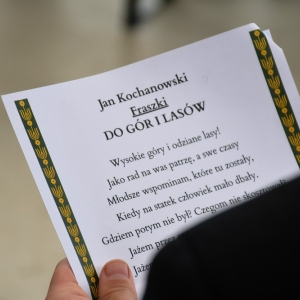 Jan Kochanowski
Fraszki
DO GÓR I LASÓW
Wysokie góry i odziane lasy!
Jako rad na was patrzę, a swe czasy
Młodsze wspominam, które tu zostały,
Kiedy na statek człowiek mało dbały.
Gdziem potym nie był? Czegom nie skosztował?
Jażem przez
Jażem